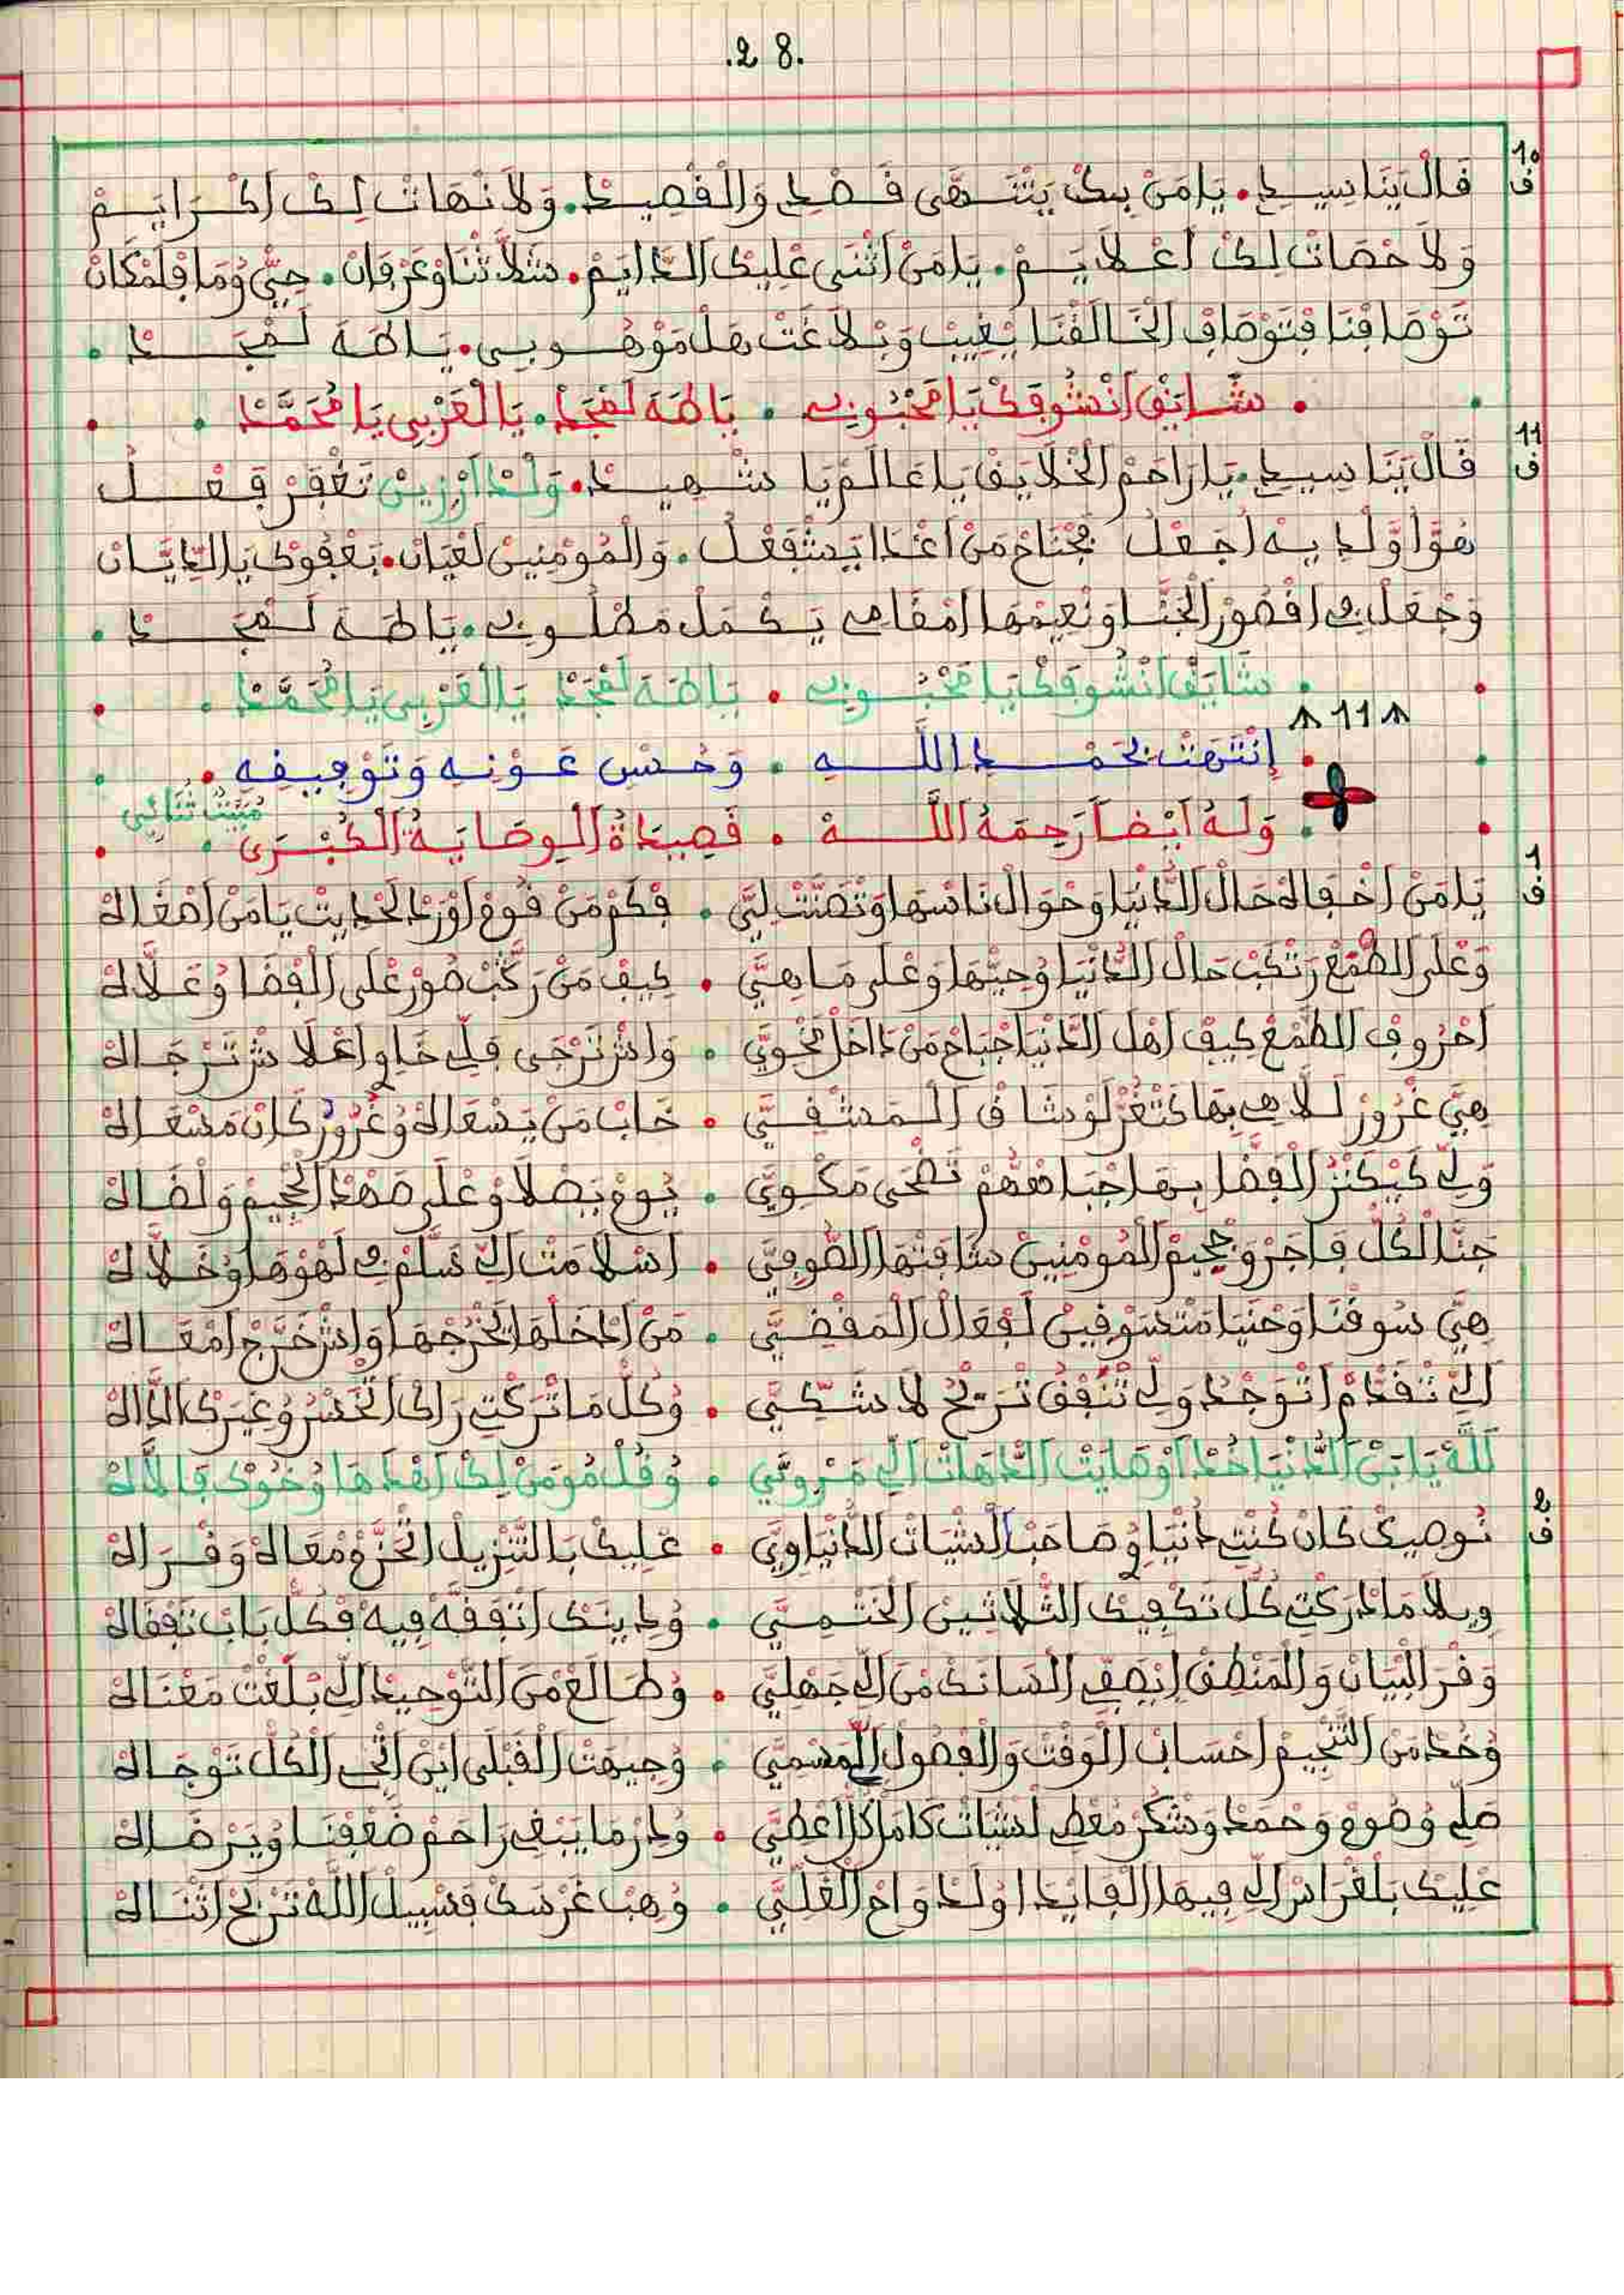 .28.
10 ف
قال يَنَا سِيدِ . يَا مَنْ بِكْ يَنْتَهَى قَصْدِ وَالْقْصِيدْ . وَلاَ نْهَاتْ لِكْ اكْرَايَمْ
وَلاَ حْصَاتْ لِكْ اعْلاَيَمْ . يَا مَنْ اثْنَى عْلِيكْ الدَّايَمْ . شَلاَّ ثْنَا وْعَرْفَانْ . حِيِّ وُمَا فْلَمْكَانْ
تَوْصَافْنَا فْتَوْصَافْ الْخَالَقْنَا بْغِيبْ وَبْلاَغَتْ هَلْ مَوْهُوبِي . يَاطَهَ لَمْجَدْ .
. شَايَقْ انْشُوفَكْ يَا مَحْبُوبِي . يَاطَهَ لَمْجَدْ . يَالْعَرْبِي يَا مُحَمَّدْ .
11 ف
قَالْ يَنَا سِيدِ . يَا رَاحَمْ الْخْلاَيَقْ يَا عَالَمْ يَا شْهِيدْ . وَلْدْ ارْزِينْ تَغْفَرْ فَعْلُ
هُوَّ اوَّلْدِيهْ اجْعَلُ مَجْتَاحْ مَنْ اعْدَا يَشْفَعْلُ . وَالْمُومْنِينْ لَعْيَانْ . بَعْفُوكْ يَا الدِّيَّانْ
وَجْعَلْ فِي اقْصُورْ الْجَنَّا وَنْعِيمْهَا امْقَامِي يَكْمَلْ مَطْلُوبِي . يَاطَهَ لَمْجَدْ .
. شَايَقْ انْشُوفَكْ يَا مَحْبُوبِي . يَاطَهَ لَمْجَدْ يَالْعَرْبِي يَا مُحَمَّدْ .
11
. إنْتَهَتْ بحَمْدِ اللَّهِ . وَحُسْنِ عَوْنِهِ وَتَوْفِيقِهِ .
. وَلَهُ أيْضاً رَحِمَهُ اللَّهْ . قَصِيدَةُ الْوِصَايَةُ الْكُبْرَى . مْبَيّتْ ثُنَائِي
1 ف
يَا مَنْ اخْفَاهْ حَالْ الدَّنْيَا وَحْوَالْ نَاسْهَا وَتْصَنَّتْ لِيَّ . فْكَمْ مَنْ قُومْ اوْرَدْ الْحْدِيتْ يَا مَنْ اصْغَاهْ
وَعْلَى الطَّمْعْ رَتْكَبْ حَالْ الدَّنْيَا وُحِيَّهَا وَعْلَى مَا هِيَّ . كِيفْ مَنْ رَكَّبْ صُورْ عْلَى الْفْضَا وُعَلاَّهْ
احْرُوفْ الطَّمْعْ كِيفْ اهْلْ الدَّنْيَا جْبَاحْ مَنْ دَاخَلْ مَخْوِيَّ . وَاشْ تَرْجَى فِلِّي خَاوِ اعْلاَشْ تَرْجَاهْ
هِيَّ غْرُورْ لَلاَّهِي بِهَا كَتْغَرّْ لَوْ شَافْ الْمَشْفِيَّ . خَابْ مَنْ يَسْعَاهْ وُغْرُورْ كَانْ مَسْعَاهْ
وَلِّي كَيْكَنْزْ الْفْضَا بِهَا اجْبَاهْهُمْ تَضْحَى مَكْوِيَّ . يُومْ يَصْلاَوْ عْلَى صَهْدْ الْجْحِيمْ وَلْضَاهْ
جَنَّا الْكُلّْ فَاجَرْ وَجْحِيمْ الْمُومْنِينْ شَافَتْهَا الصُّوفِيَّ . اسْلاَمَتْ الِّي سَلَّمْ فِي لَهْوْهَا وُخَلاَّهْ
هِيَّ سُوقْنَا وَحْنَيَا مَتْسَوّقِينْ لَفْعَالْ الْمَقْضِيَّ . مَنْ ادْخَلْهَا يَخْرُجْهَا وَاشْ خَرَّجْ امْعَاهْ
الِّي تْقَدَّمْ اتَوَجْدُ وَلِّي تْنَفْقُ تَرْبْحُ لاَ شَكِّيَّ . وُكُلّْ مَا تْرَكْتِ رَاكْ اتْخَسْرُ وُغَيْرَكْ ادَّاهْ
لَلَّهْ يَابَنْ الدَّنْيَا خُدْ اوْصَايَتْ الدَّهَاتْ الِّي مَرْوِيَّ . وُقُلْ مُومَنْ لِكْ اهْدَاهَا وُخُوكْ فَاللَّهْ
2 ف
نُوصِيكْ كَانْ كُنْتِ دَنْيَاوِ صَاحَبْ الْشْيَاتْ الدَّنْيَاوِيَّ . عْلِيكْ بَالتَّنْزِيلْ اتْحَزّْ وُمْعَاهْ وَقْرَاهْ
ويلاَ مَا دْرَكْتِ كُلّْ تَكْفِيكْ الثّلاَثِينْ الْخَتْمِيَّ . وُدِينَكْ اتْفَقَّهْ فِيهْ فْكُلّْ بَابْ تَقْفَاهْ
وَقْرَ الْبْيَانْ وَالْمَنْطِقْ إيْصَفِّي الْسَانَكْ مْنْ الْجَهْلِيَّ . وُطَالَعْ مْنْ التَّوْحِيدْ الِّي بْلَغْتْ مَعْنَاهْ
وُخُدْ مَنْ التَّنْجِيمْ احْسَابْ الْوَقْتْ وَالْفْصُولْ الْمَسْمِيَّ . وُجِيهَتْ الْقَبْلَى ايْنْ اتْجِي الْكُلّْ تَوْجَاهْ
صَلِّي وُصُومْ وَحْمَدْ وَشْكَرْ مُعْطِي لَشْيَاتْ كَامَلْ كُلّْ اعْطِيَّ . وُدِرْ مَا يَبْغِي رَاحَمْ ضُعْفْنَا وُيَرْضَاهْ
عْلِيكْ بَلْغْرَاسْ الِّي فِيهَا الْفَايْدَا اوْلَدْوَاحْ الْغَلِّيَّ . وُهِبْ غَرْسَكْ فَسْبِيلْ اللَّهْ تَرْبَحْ اثْنَاهْ